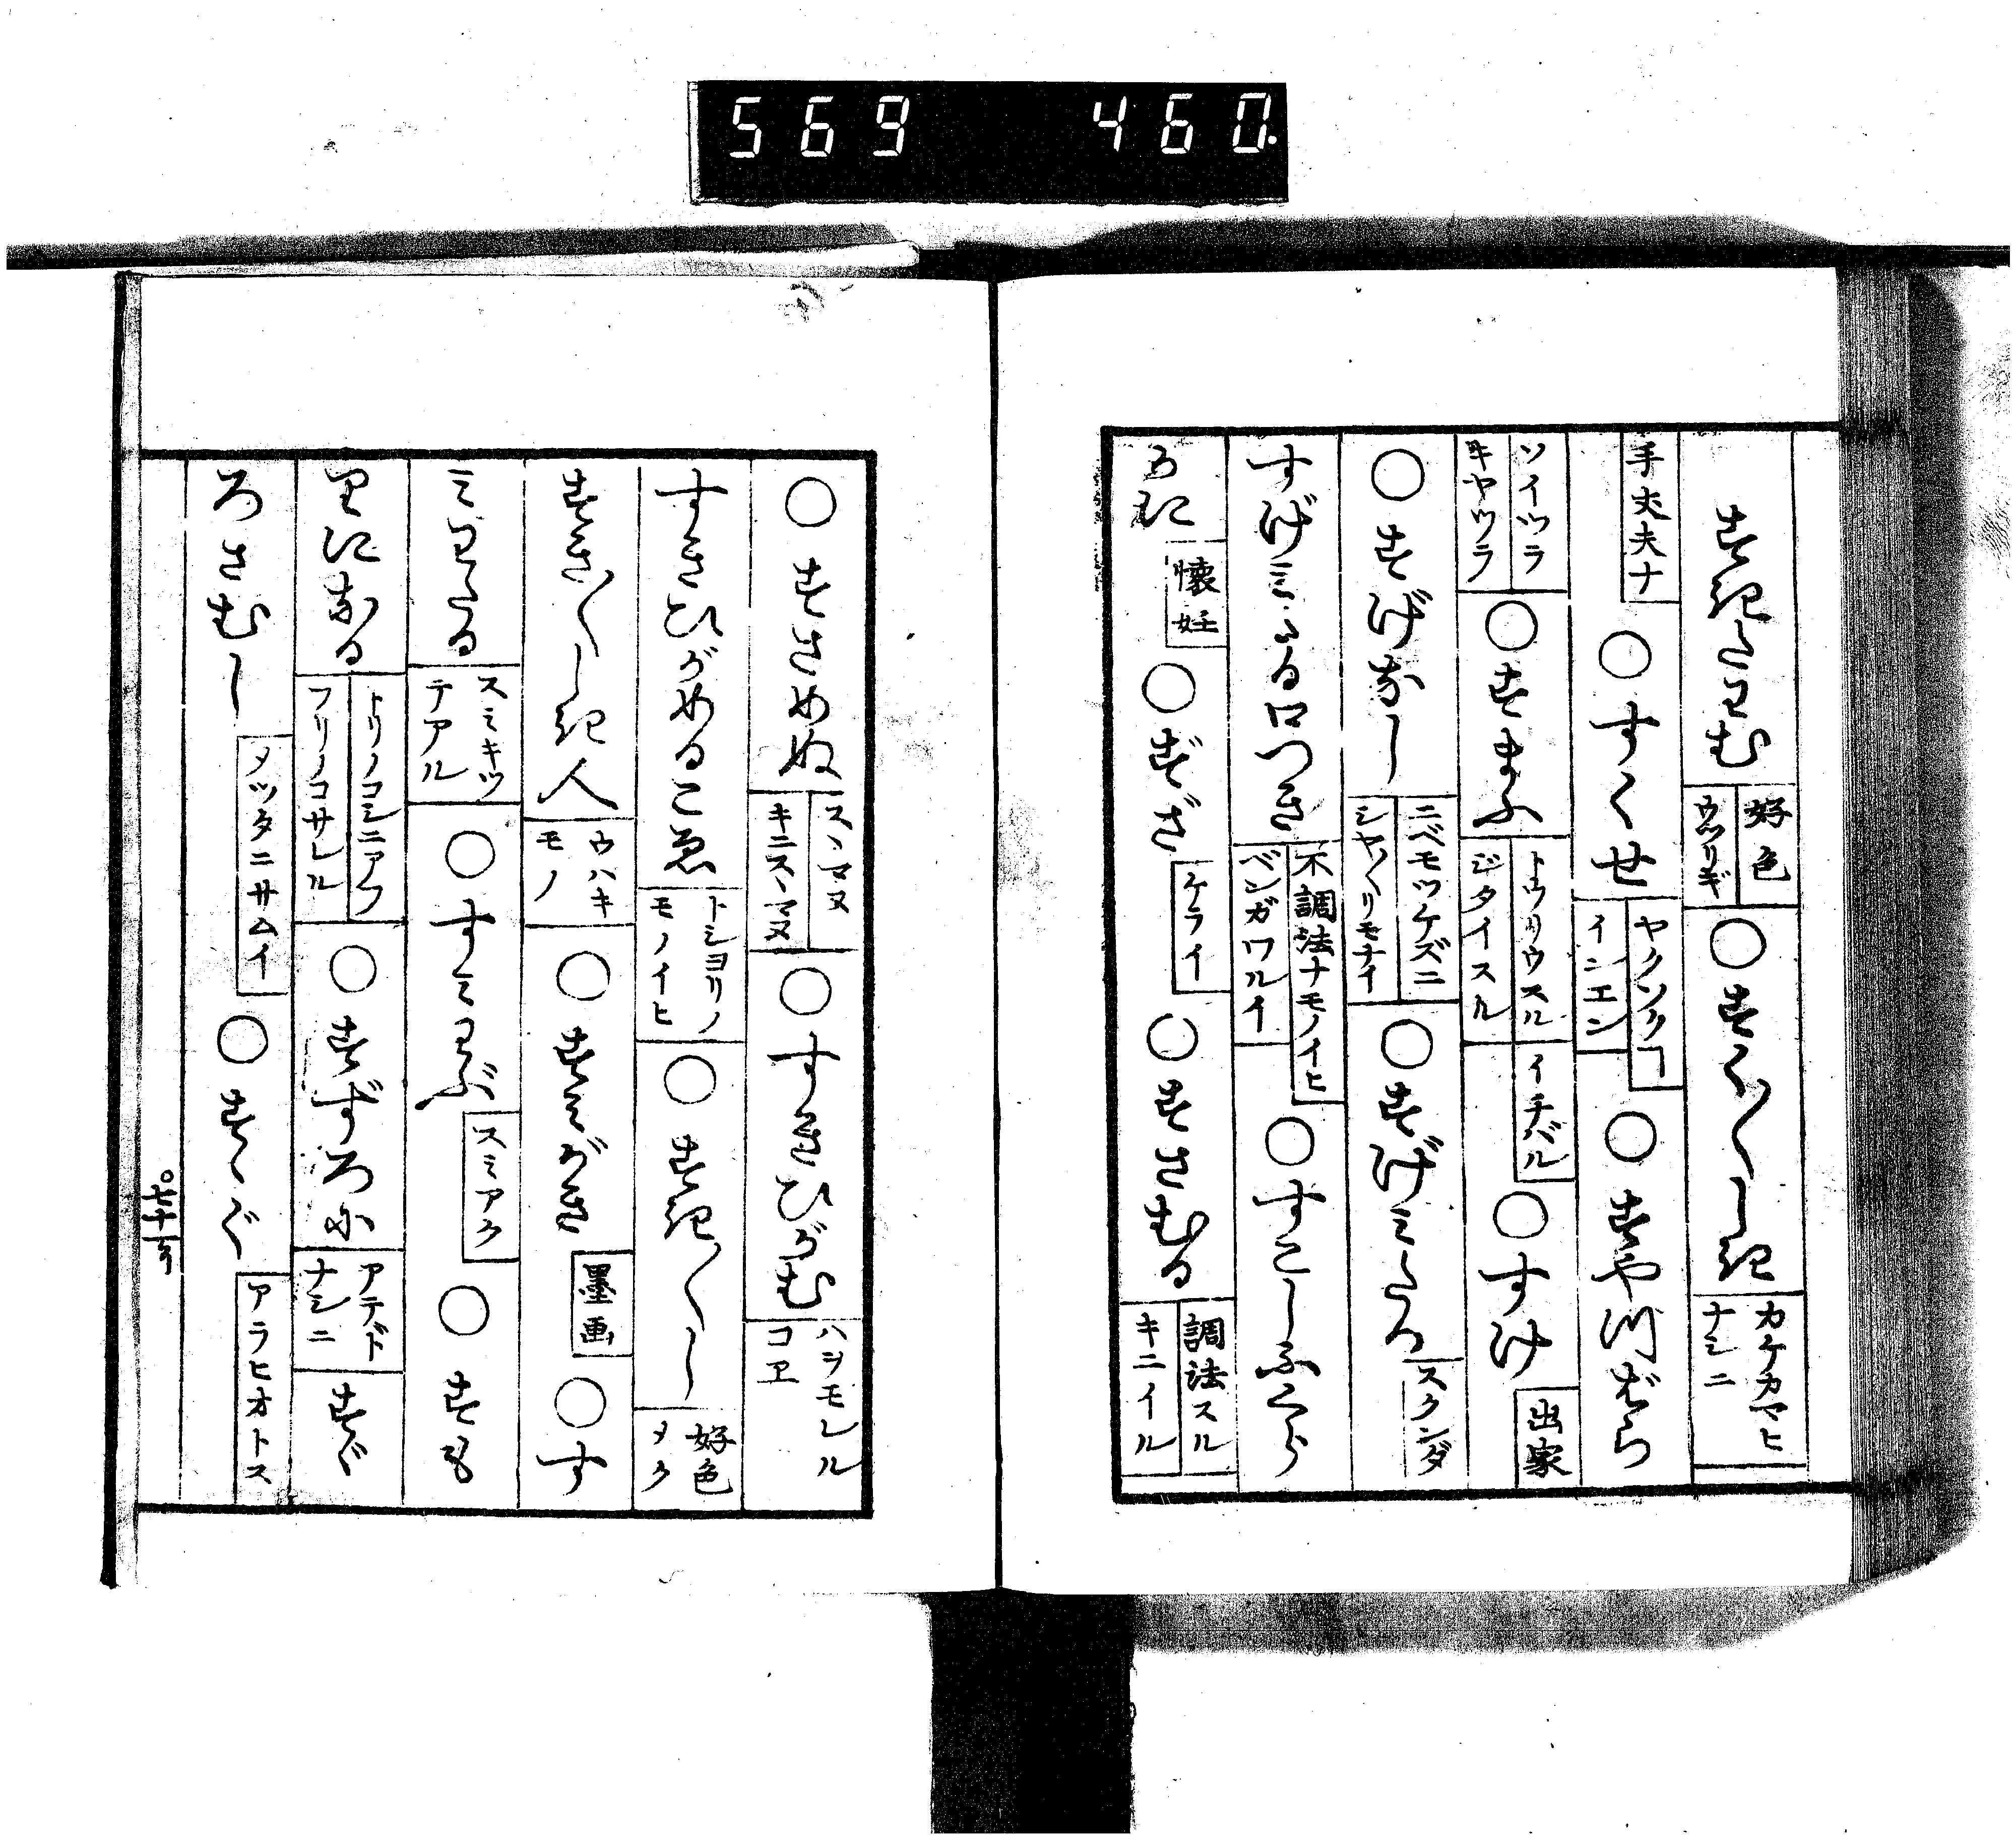 569 460.
すきたわむ 好色 ウツリギ ○すく〳〵しき カケカマヒナシニ
手丈夫ナ ○すくせ ヤクソクヿ インエン ○すやつばら
ソイツラ キヤツラ ○すまふ トウリウスル ジタイスル イチバル ○すけ 出家
○すげなし ニベモツケズニ シヤ〳〵リモナイ ○すげみたる スクンダ
すげみたる口つき 不調法ナモノイヒ ベンガワルイ ○すこしふくら
かに 懐妊 ○ずざ ケライ ○すさむる 調法スル キニイル
○すさめぬ スヽマヌ キニスヽマヌ ○すきひがむ ハヲモレル コヱ
すきひがめるこゑ トシヨリノ モノイヒ ○すき〳〵し 好色 メク
すき〳〵しき人 ウハキ モノ ○すみがき 墨画 ○す
みわたる スミキツ テアル ○すみわぶ スミアク ○すも
りになる トリノコシニアフ フリノコサレル ○すずろに アテド ナシニ すぐ
ろさむし メツタニサムイ ○すゝぐ アラヒオトス